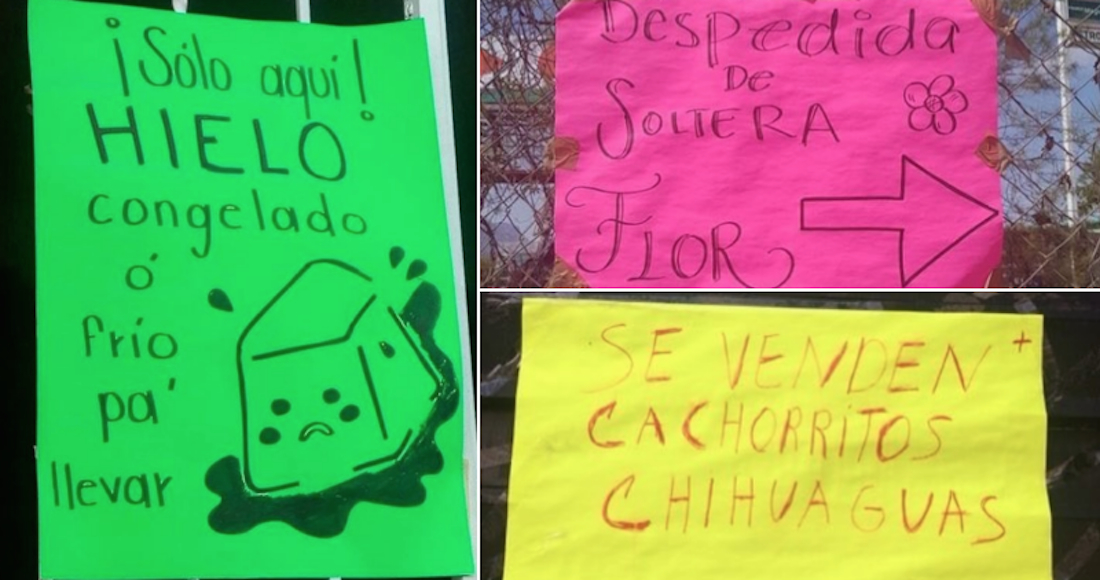 ¡Sólo aquí!
HIELO
congelado
ó
frío
pa'
llevar
Despedida
De
SOLTERA
FLOR
SE VENDEN +
CACHORRiTOS
CHIHUAGUAS